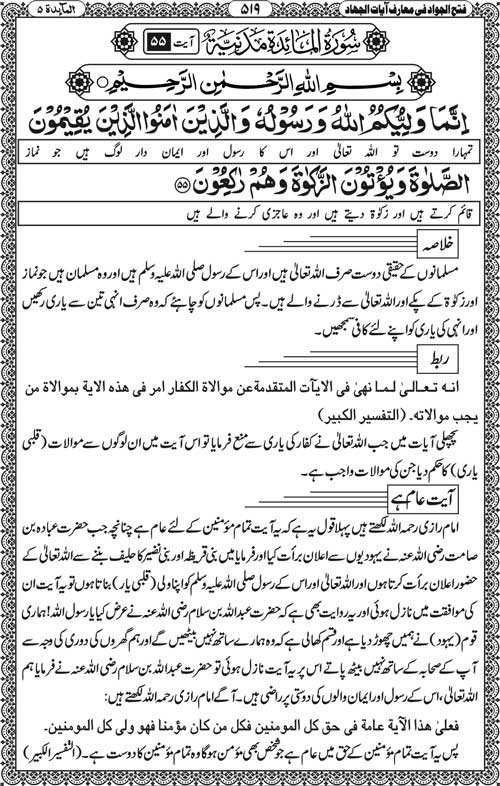 فتح الجواد فی معارف آیات الجهاد ۵۱۹ المآیدة ۵
سُوْرَةُ الْمَآئِدَةِ مَدَنِيَّةٌ آیت ۵۵
بِسْمِ اللهِ الرَّحْمٰنِ الرَّحِيْمِ
اِنَّمَا وَلِيُّكُمُ اللهُ وَرَسُوْلُهٗ وَالَّذِيْنَ اٰمَنُوا الَّذِيْنَ يُقِيْمُوْنَ
تمہارا دوست تو اللہ تعالیٰ اور اس کا رسول اور ایمان دار لوگ ہیں جو نماز
الصَّلٰوةَ وَيُؤْتُوْنَ الزَّكٰوةَ وَهُمْ رٰكِعُوْنَ ۵۵
قائم کرتے ہیں اور زکوٰۃ دیتے ہیں اور وہ عاجزی کرنے والے ہیں
خلاصہ
مسلمانوں کے حقیقی دوست صرف اللہ تعالیٰ ہیں اور اس کے رسول صلی اللہ علیہ وسلم ہیں اور وہ مسلمان ہیں جو نماز
اور زکوٰۃ کے پکے اور اللہ تعالیٰ سے ڈرنے والے ہیں۔ پس مسلمانوں کو چاہئے کہ وہ صرف انہی تین سے یاری رکھیں
اور انہی کی یاری کو اپنے لئے کافی سمجھیں۔
ربط
انه تعالیٰ لما نهیٰ فی الایآت المتقدمة عن موالاة الکفار امر فی هذه الایة بموالاة من
یجب موالاته۔ (التفسیر الکبیر)
پچھلی آیات میں جب اللہ تعالیٰ نے کفار کی یاری سے منع فرمایا تو اس آیت میں ان لوگوں سے موالات (قلبی
یاری) کا حکم دیا جن کی موالات واجب ہے۔
آیت عام ہے
امام رازی رحمہ اللہ لکھتے ہیں پہلا قول یہ ہے کہ یہ آیت تمام مؤمنین کے لئے عام ہے چنانچہ جب حضرت عبادہ بن
صامت رضی اللہ عنہ نے یہودیوں سے اعلان برأت کیا اور فرمایا میں بنی قریظہ اور بنی نضیر کا حلیف بننے سے اللہ تعالیٰ کے
حضور اعلان برأت کرتا ہوں اور اللہ تعالیٰ اور اس کے رسول صلی اللہ علیہ وسلم کو اپنا ولی (قلبی یار) بناتا ہوں تو یہ آیت ان
کی موافقت میں نازل ہوئی اور یہ روایت بھی ہے کہ حضرت عبداللہ بن سلام رضی اللہ عنہ نے عرض کیا یا رسول اللہ! ہماری
قوم (یہود) نے ہمیں چھوڑ دیا ہے اور قسم کھالی ہے کہ وہ ہمارے ساتھ نہیں بیٹھیں گے اور ہم گھروں کی دوری کی وجہ سے
آپ کے صحابہ کے ساتھ نہیں بیٹھ پاتے اس پر یہ آیت نازل ہوئی تو حضرت عبداللہ بن سلام رضی اللہ عنہ نے فرمایا ہم
اللہ تعالیٰ، اس کے رسول اور ایمان والوں کی دوستی پر راضی ہیں۔ آگے امام رازی رحمہ اللہ لکھتے ہیں:
فعلیٰ هذا الآیة عامة فی حق کل المومنین فکل من کان مؤمنا فهو ولی کل المومنین۔
پس یہ آیت تمام مؤمنین کے حق میں عام ہے جو شخص بھی مؤمن ہو گا وہ تمام مؤمنین کا دوست ہے۔ (التفسیر الکبیر)